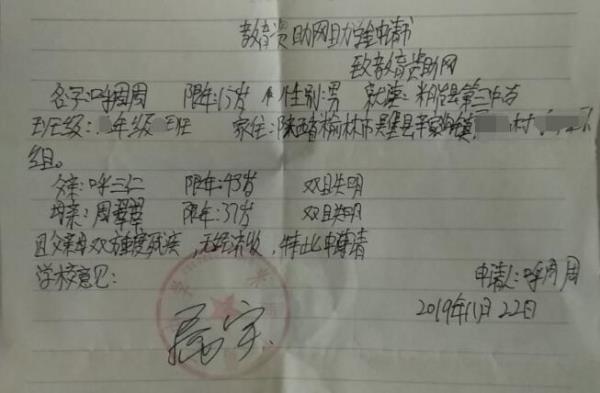 教育资助网助学金申请书
致教育资助网
名字:呼周周 限年:15岁 性别:男 就读:米脂县第三中学
班级: 年级 班 家住:陕西省榆林市吴堡县辛家沟镇 村
组。
父亲:呼三仁 限年:43岁 双目失明
母亲:周翠翠 限年:37岁 双目失明
因父亲母双方重度残疾,无经济收,特此申请
学校意见:
申请人:呼周周
2019年11月22日
属实.